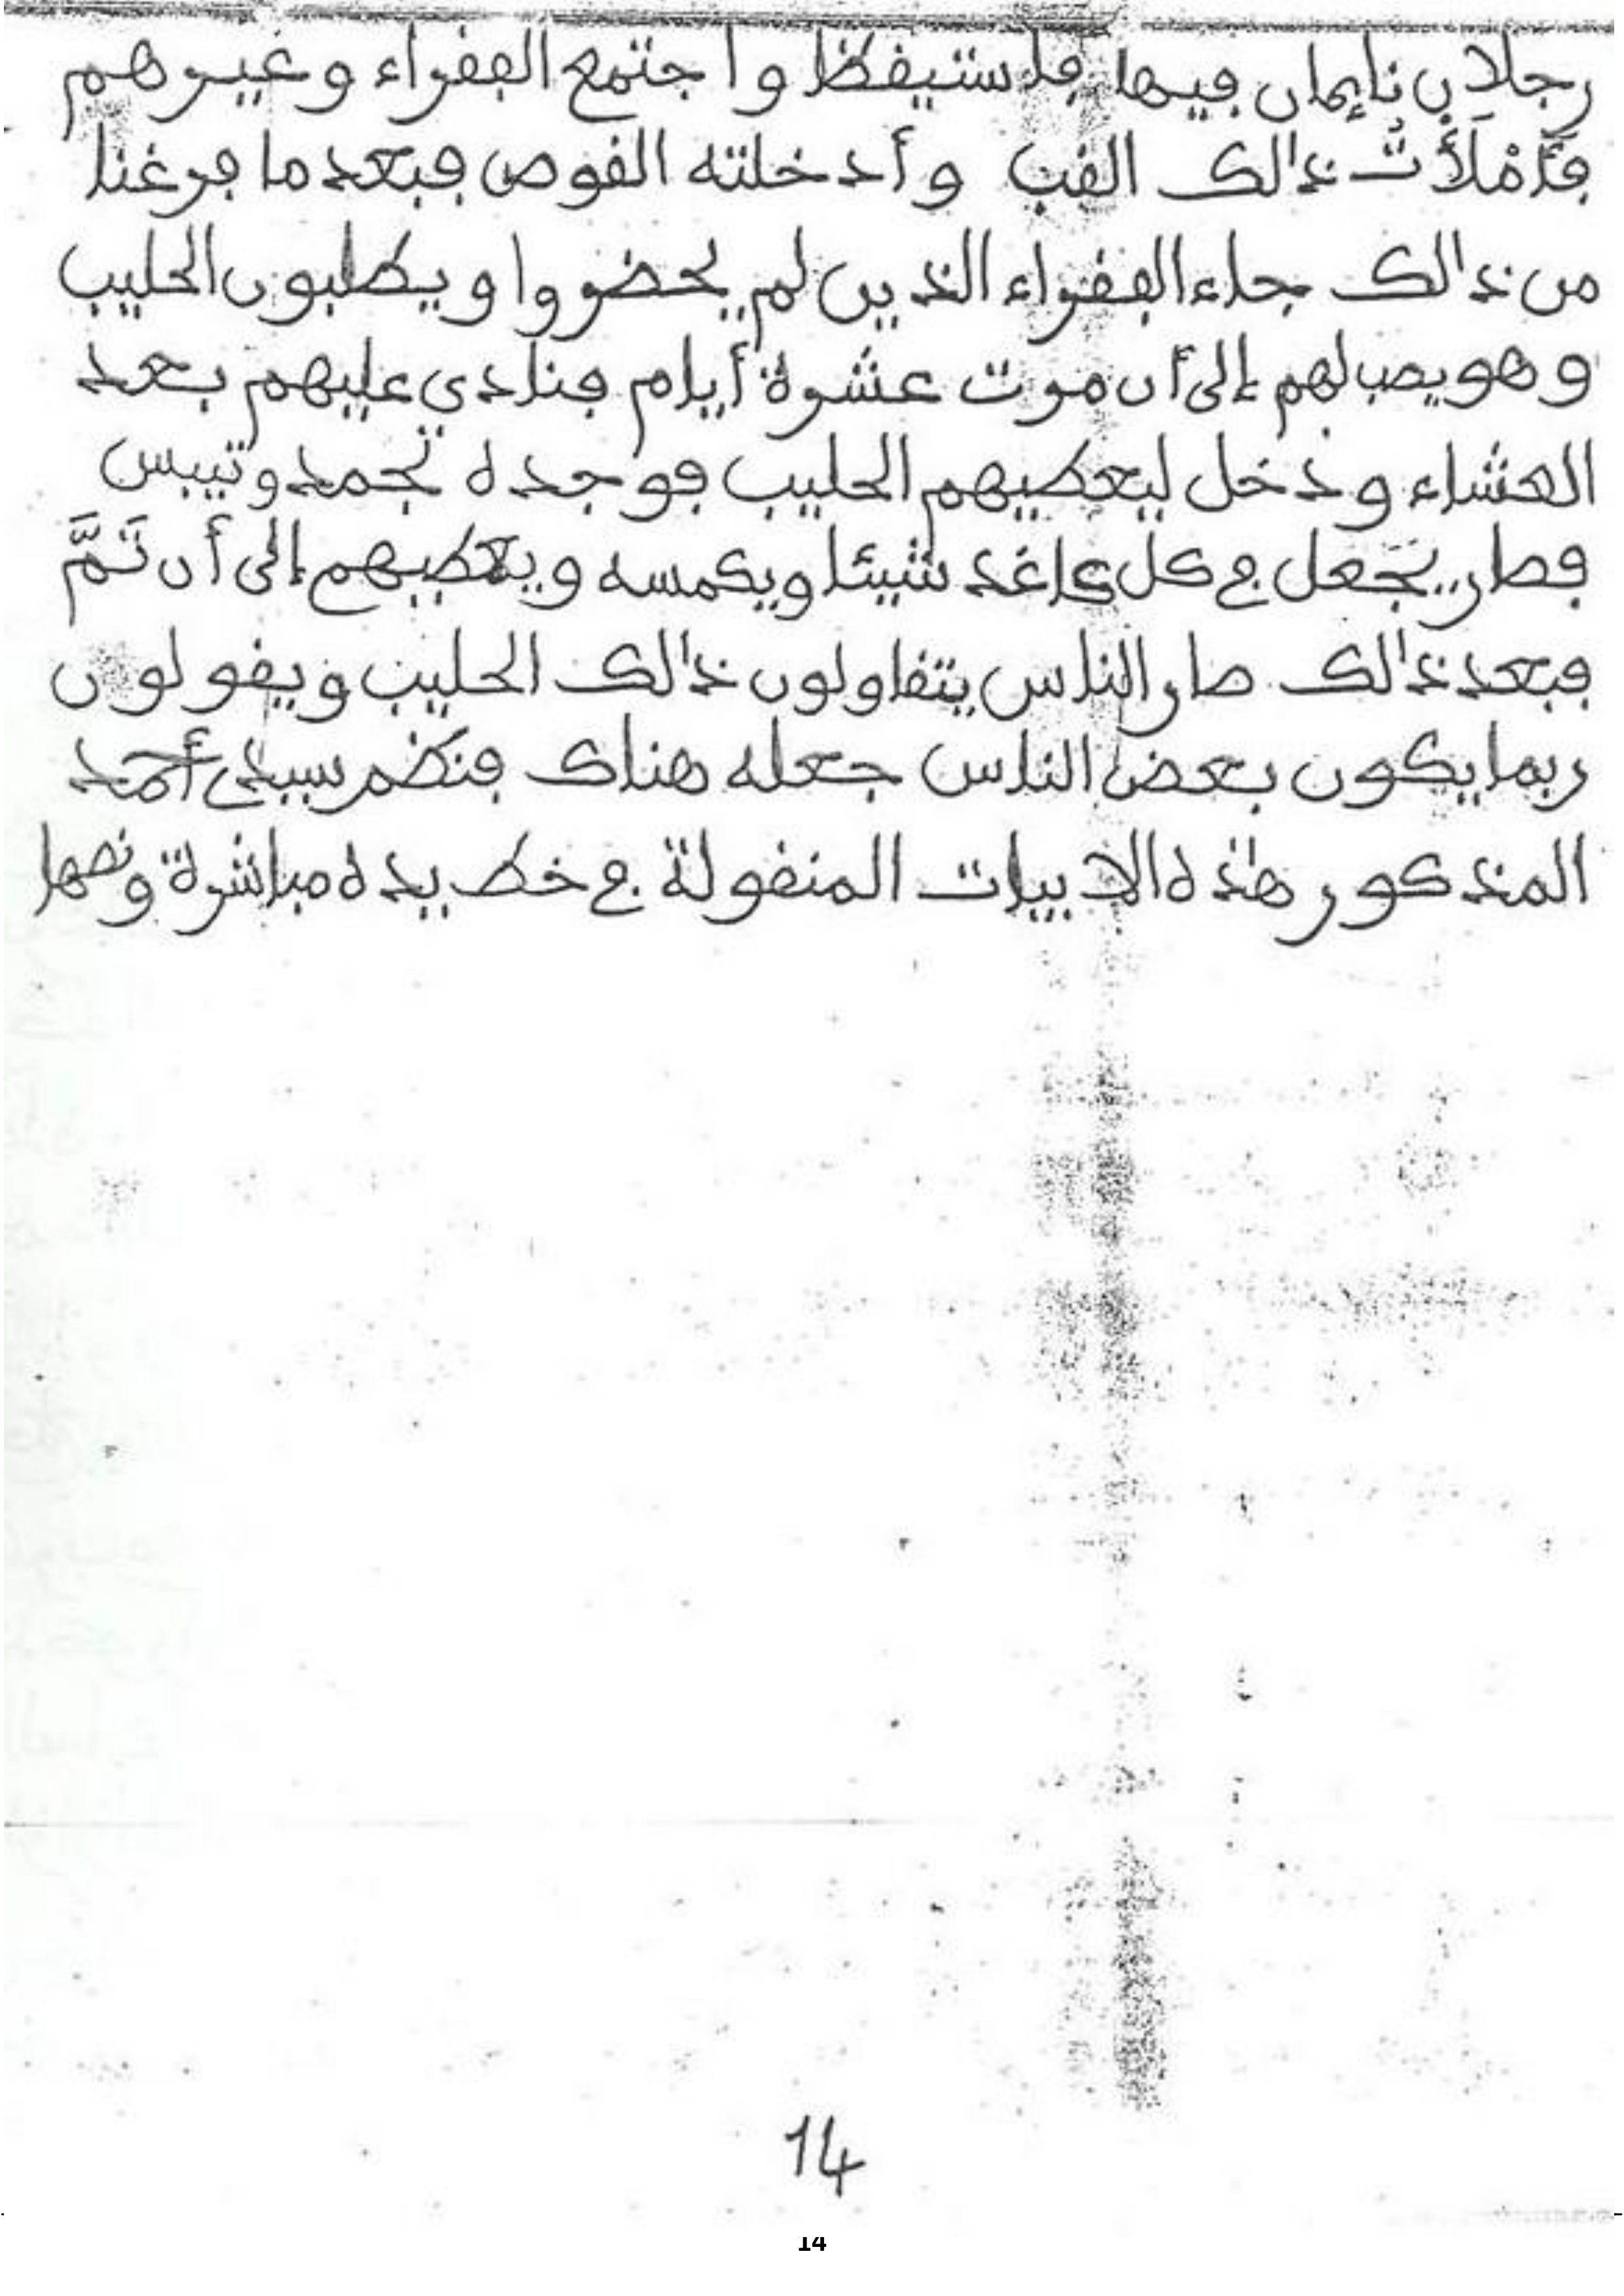 رجلان نايمان فيها فاستيقظا واجتمع الفقراء وغيرهم
فَأَمْلَأْتُ ذالك القب وأدخلته القوص فبعد ما فرغنا
من ذالك جاء الفقراء الذين لم يحضروا ويطلبون الحليب
وهو يصب لهم إلى أن موت عشرة أيام فنادى عليهم بعد
العشاء ودخل ليعطيهم الحليب فوجده تجمد وتيبس
فصار يجعل في كل كاغد شيئا ويكمسه ويعطيهم إلى أن تَمَّ
فبعد ذالك صار الناس يتقاولون ذالك الحليب ويقولون
ربما يكون بعض الناس جعله هناك فنظم سيدي أحمد
المذكور هذه الابيات المنقولة في خط يده مباشرة ونصها
14
14